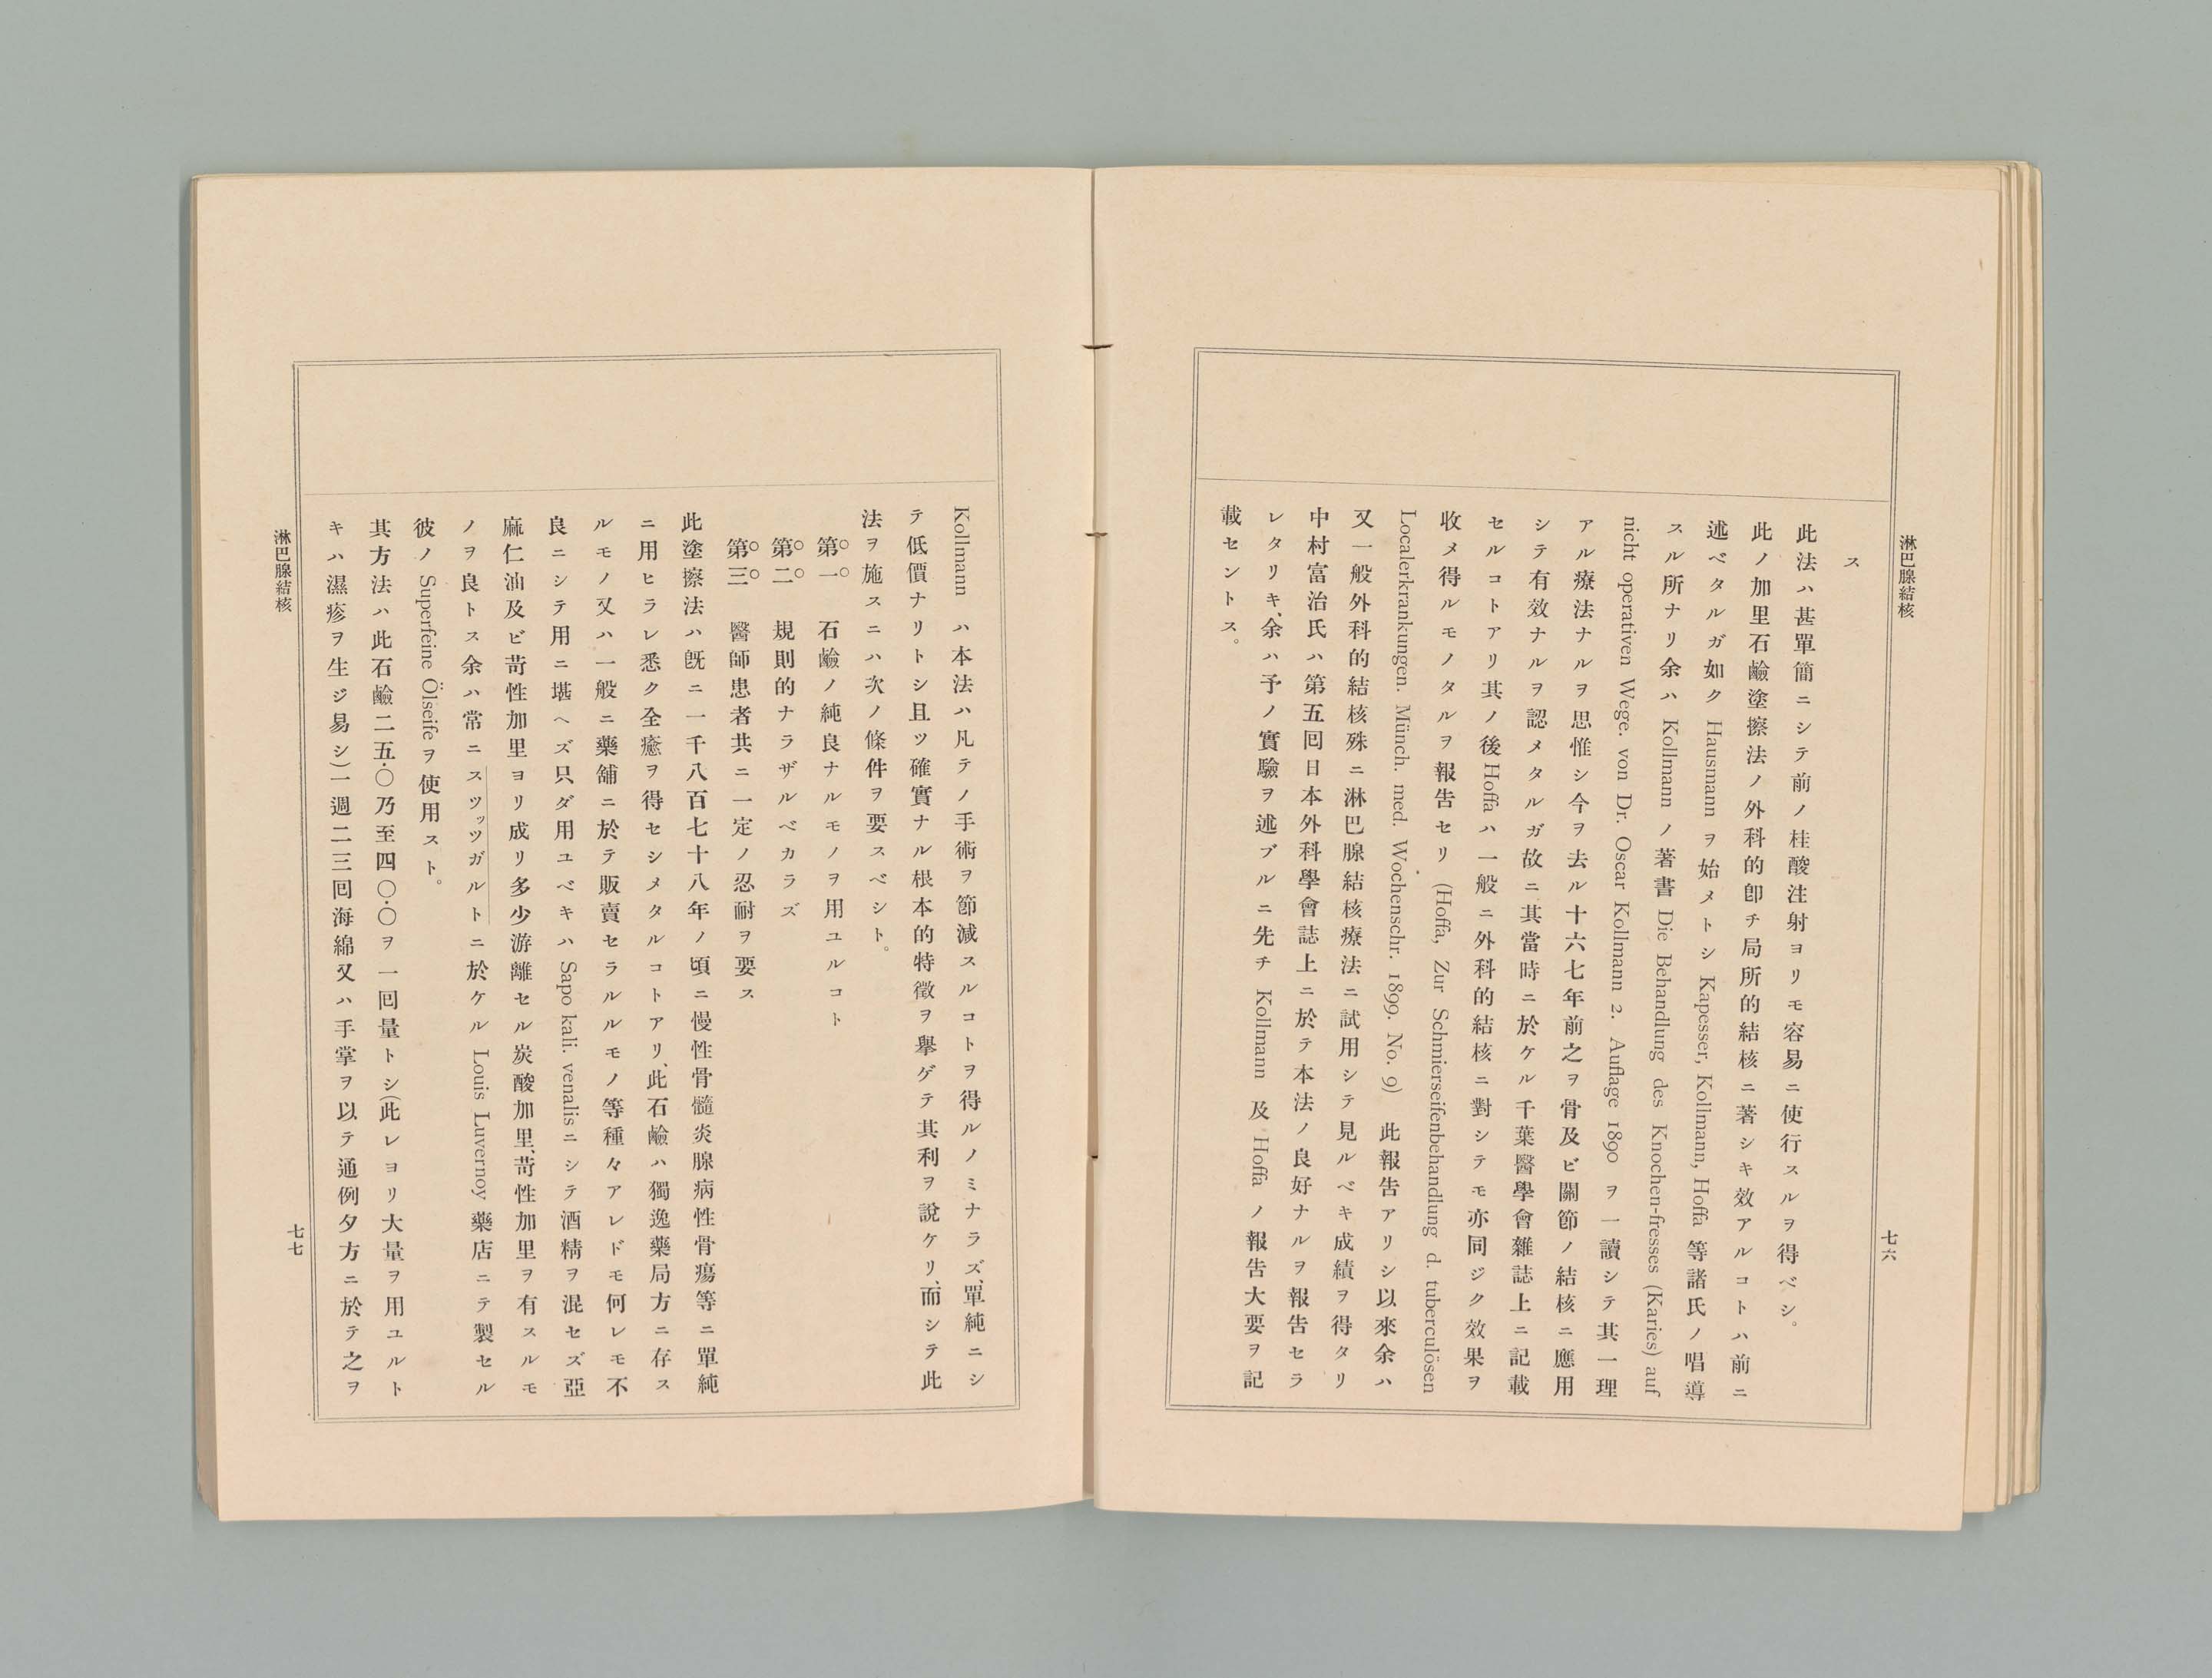 淋巴腺結核
七六
ス
此法ハ甚單簡ニシテ前ノ桂酸注射ヨリモ容易ニ使行スルヲ得ベシ。
此ノ加里石鹼塗擦法ノ外科的卽チ局所的結核ニ著シキ效アルコトハ前ニ
述ベタルガ如ク Hausmann ヲ始メトシ Kapesser, Kollmann, Hoffa 等諸氏ノ唱導
スル所ナリ余ハ Kollmann ノ著書 Die Behandlung des Knochen-fresses (Karies) auf
nicht operativen Wege. von Dr. Oscar Kollmann 2. Auflage 1890 ヲ一讀シテ其一理
アル療法ナルヲ思惟シ今ヲ去ル十六七年前之ヲ骨及ビ關節ノ結核ニ應用
シテ有效ナルヲ認メタルガ故ニ其當時ニ於ケル千葉醫學會雜誌上ニ記載
セルコトアリ其ノ後 Hoffa ハ一般ニ外科的結核ニ對シテモ亦同ジク效果ヲ
收メ得ルモノタルヲ報吿セリ (Hoffa, Zur Schmierseifenbehandlung d. tuberculösen
Localerkrankungen. Münch. med. Wochenschr. 1899. No. 9) 此報吿アリシ以來余ハ
又一般外科的結核殊ニ淋巴腺結核療法ニ試用シテ見ルベキ成績ヲ得タリ
中村富治氏ハ第五回日本外科學會誌上ニ於テ本法ノ良好ナルヲ報吿セラ
レタリキ、余ハ予ノ實驗ヲ述ブルニ先チ Kollmann 及 Hoffa ノ報吿大要ヲ記
載セントス。
Kollmann ハ本法ハ凡テノ手術ヲ節減スルコトヲ得ルノミナラズ、單純ニシ
テ低價ナリトシ且ツ確實ナル根本的特徵ヲ擧ゲテ其利ヲ說ケリ、而シテ此
法ヲ施スニハ次ノ條件ヲ要スベシト。
第一 石鹼ノ純良ナルモノヲ用ユルコト
第二 規則的ナラザルベカラズ
第三 醫師患者共ニ一定ノ忍耐ヲ要ス
此塗擦法ハ旣ニ一千八百七十八年ノ頃ニ慢性骨髓炎腺病性骨瘍等ニ單純
ニ用ヒラレ悉ク全癒ヲ得セシメタルコトアリ、此石鹼ハ獨逸藥局方ニ存ス
ルモノ又ハ一般ニ藥舖ニ於テ販賣セラルルモノ等種々アレドモ何レモ不
良ニシテ用ニ堪ヘズ只ダ用ユベキハ Sapo kali. venalis ニシテ酒精ヲ混セズ亞
麻仁油及ビ苛性加里ヨリ成リ多少游離セル炭酸加里、苛性加里ヲ有スルモ
ノヲ良トス余ハ常ニスツッツガルトニ於ケル Louis Luvernoy 藥店ニテ製セル
彼ノ Superfeine Ölseife ヲ使用スト。
其方法ハ此石鹼二五・〇乃至四〇・〇ヲ一回量トシ(此レヨリ大量ヲ用ユルト
キハ濕疹ヲ生ジ易シ)一週二三回海綿又ハ手掌ヲ以テ通例夕方ニ於テ之ヲ
淋巴腺結核
七七